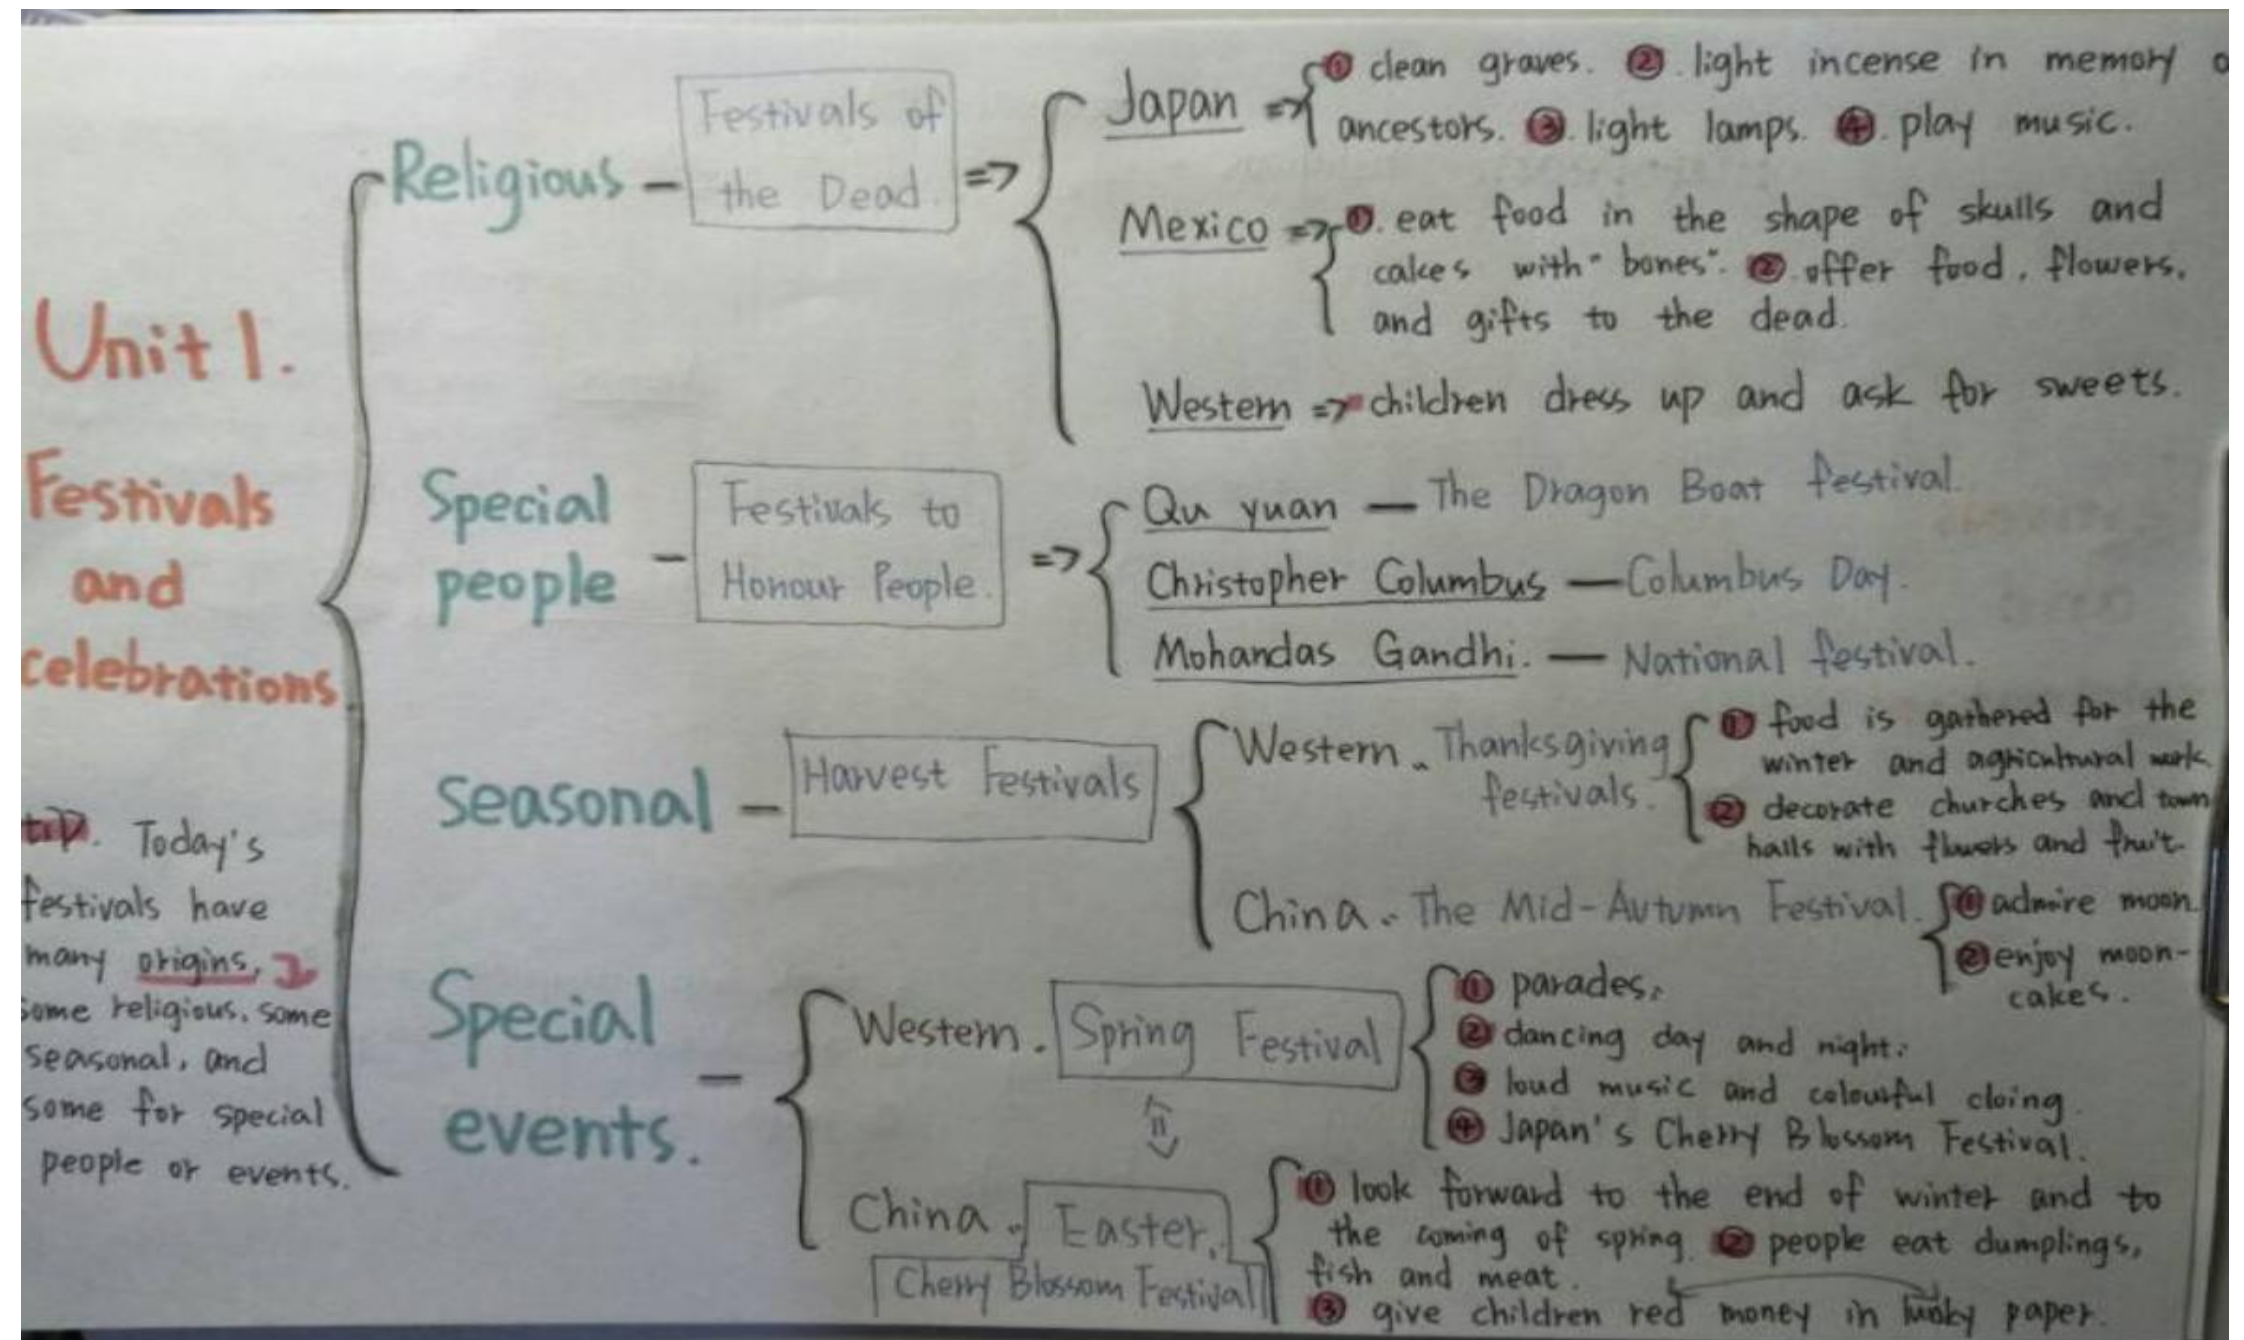 Unit 1.
Festivals
and
celebrations
tip. Today's
festivals have
many origins,
some religious, some
seasonal, and
some for special
people or events.
Religious — Festivals of
the Dead.
Japan => ① clean graves. ② light incense in memory o
ancestors. ③ light lamps. ④ play music.
Mexico => ① eat food in the shape of skulls and
cakes with "bones". ② offer food, flowers,
and gifts to the dead.
Western => children dress up and ask for sweets.
Special
people — Festivals to
Honour People.
Qu yuan — The Dragon Boat festival.
Christopher Columbus — Columbus Day.
Mohandas Gandhi. — National festival.
seasonal — Harvest Festivals
Western. Thanksgiving
festivals.
① food is gathered for the
winter and agricultural work
② decorate churches and town
halls with flowers and fruit.
China. The Mid-Autumn Festival.
① admire moon.
② enjoy moon-
cakes.
Special
events. —
Western. Spring Festival
① parades.
② dancing day and night.
③ loud music and colourful cloing.
④ Japan's Cherry Blossom Festival.
China. Easter.
Cherry Blossom Festival
① look forward to the end of winter and to
the coming of spring. ② people eat dumplings,
fish and meat.
③ give children red money in lucky paper.